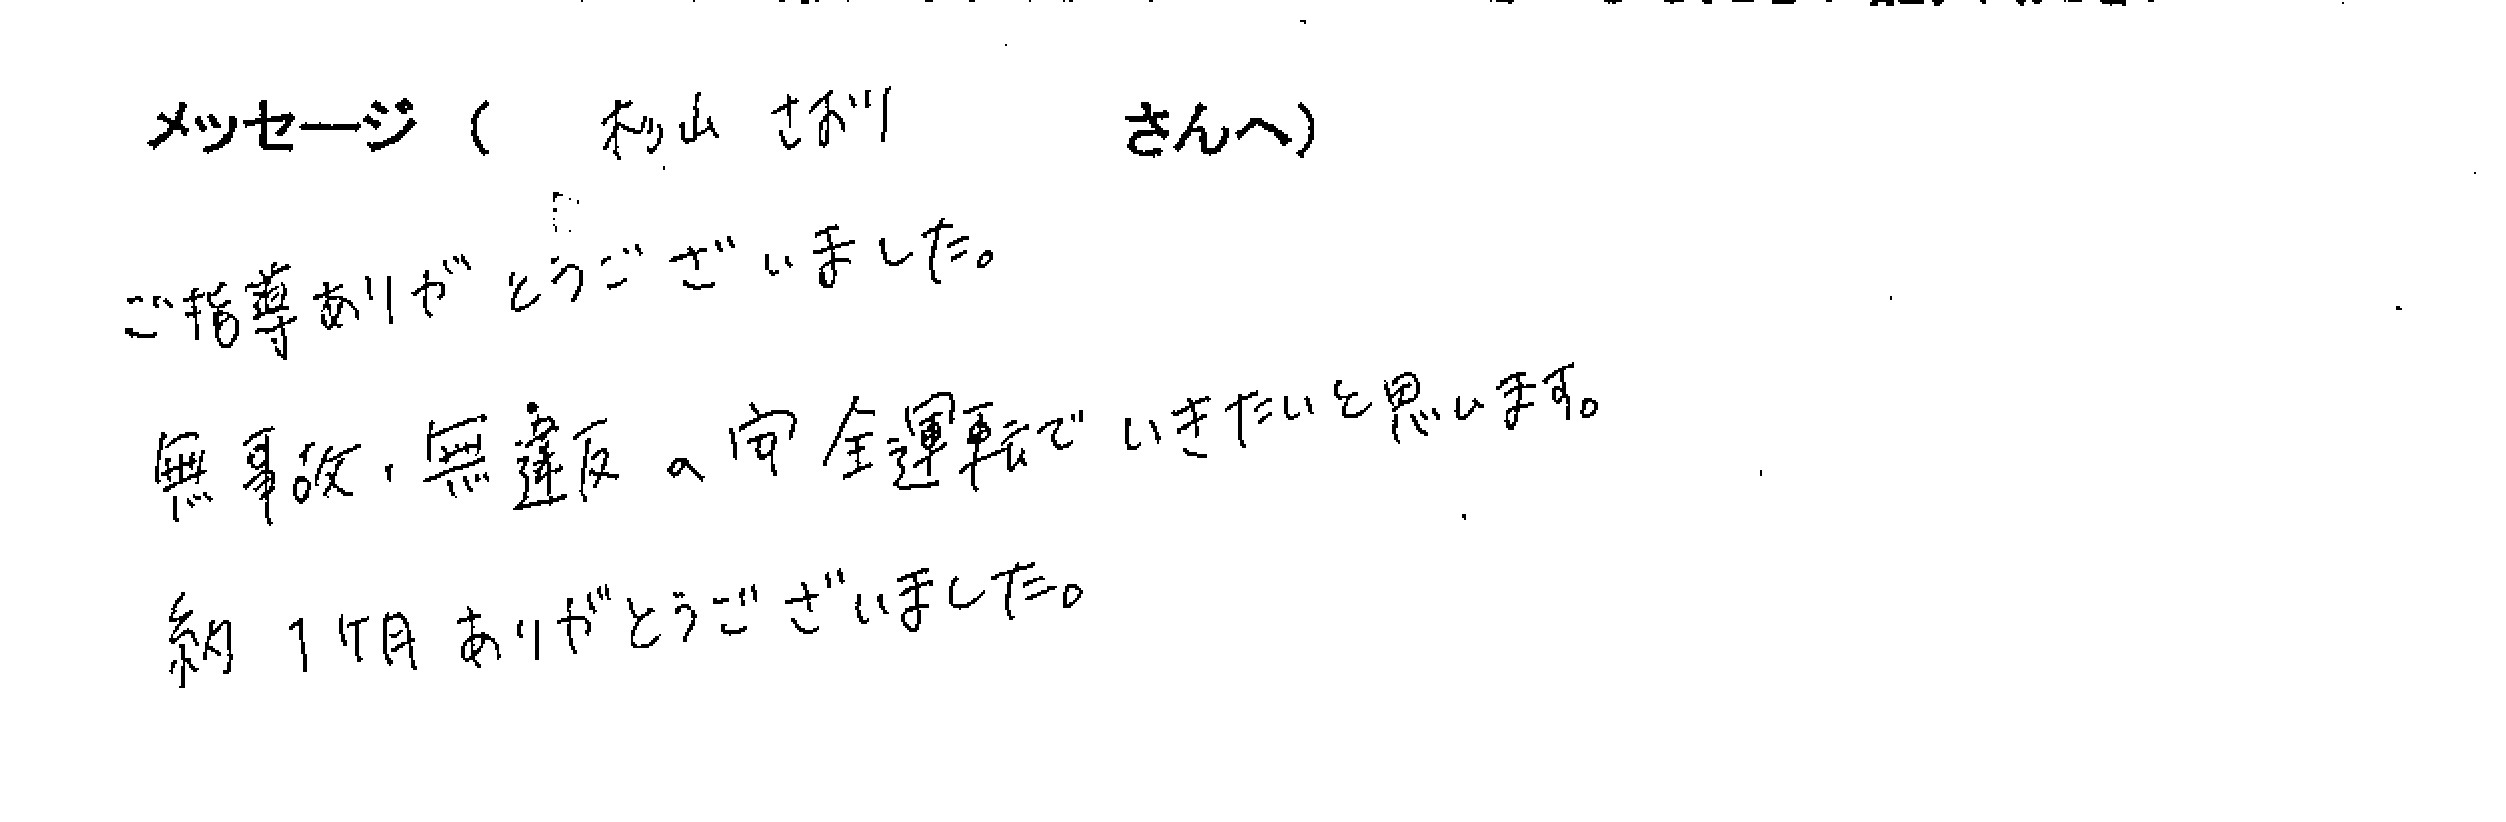 メッセージ ( 杉山 さおり さんへ)
ご指導ありがとうございました。
無事故・無違反の安全運転でいきたいと思います。
約1ヶ月ありがとうございました。